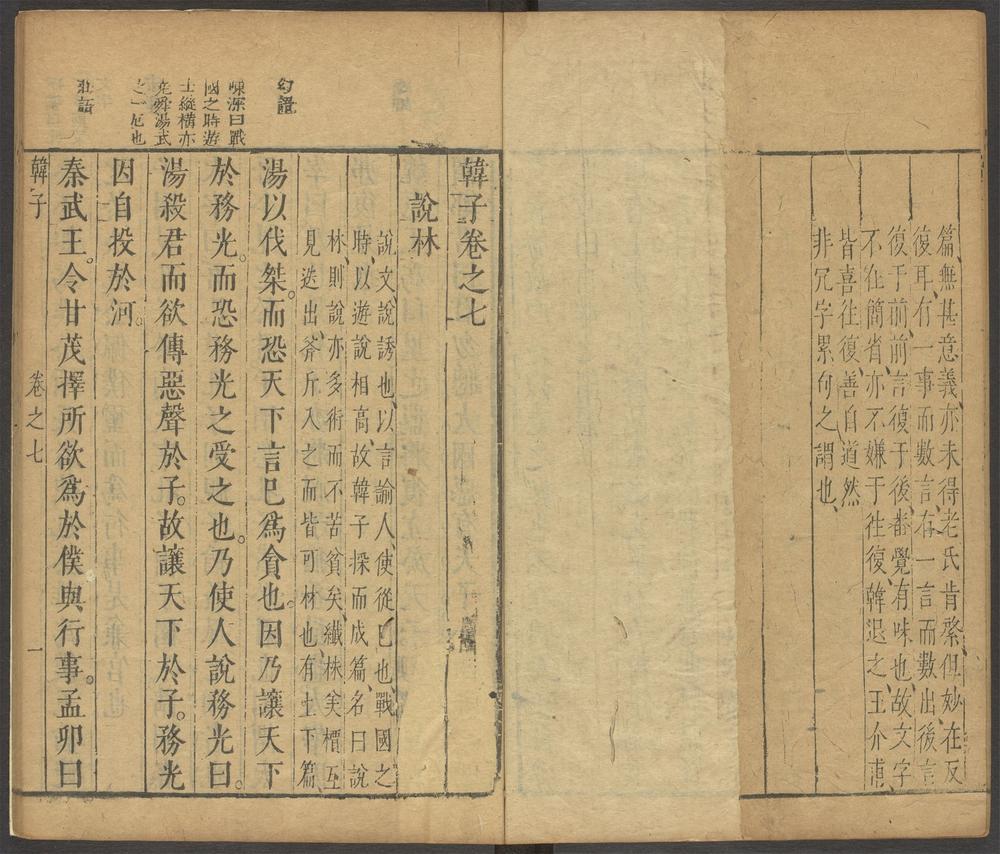 篇、無甚意義、亦未得老氏肯綮、但妙在反
復耳、有一事而數言、有一言而數出、後言
復于前、前言復于後、都覺有味也、故文字
不在簡省、亦不嫌于往復、韓退之王介甫
皆喜往復、善自道然
非冗字累句之謂也、
韓子卷之七
說林
說文、說誘也、以言諭人、使從己也、戰國之
時、以遊說相高、故韓子採而成篇、名曰說
林、則說亦多術而不苦貧矣、
見迭出、斧斤入之而皆可材也、有上下篇、
幻語
湯以伐桀。而恐天下言已爲貪也。因乃讓天下
陳深曰戰
國之時遊
士縱橫亦
堯舜湯武
之一厄也
於務光。而恐務光之受之也。乃使人說務光曰。
湯殺君而欲傳惡聲於子。故讓天下於子。務光
因自投於河。
秦武王。令甘茂擇所欲爲於僕與行事。孟卯曰
韓子
卷之七
一